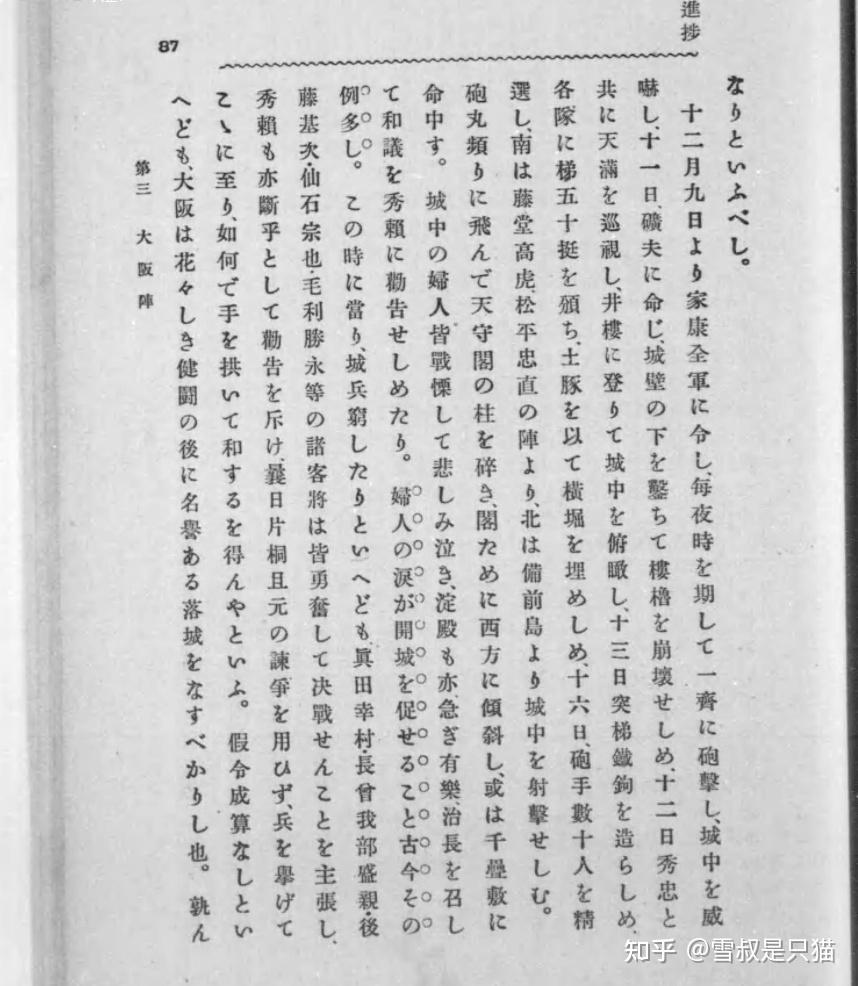 進捗
なりといふべし。
十二月九日より家康全軍に令し、每夜時を期して一齊に砲擊し、城中を威
嚇し、十一日、礦夫に命じ、城壁の下を鑿ちて樓櫓を崩壞せしめ、十二日秀忠と
共に天滿を巡視し、井樓に登りて城中を俯瞰し、十三日突梯鐵鉤を造らしめ、
各隊に梯五十挺を頒ち、土豚を以て橫堀を埋めしめ、十六日、砲手數十人を精
選し、南は藤堂高虎、松平忠直の陣より、北は備前島より城中を射擊せしむ。
砲丸頻りに飛んで天守閣の柱を碎き、閣ために西方に傾斜し、或は千疊敷に
命中す。城中の婦人皆戰慄して悲しみ泣き、淀殿も亦急ぎ有樂、治長を召し
て和議を秀賴に勸告せしめたり。婦人の淚が開城を促せること古今その
例多し。この時に當り、城兵窮したりといへども、眞田幸村・長曾我部盛親・後
藤基次・仙石宗也・毛利勝永等の諸客將は皆勇奮して決戰せんことを主張し、
秀賴も亦斷乎として勸告を斥け、曩日片桐且元の諫爭を用ひず、兵を擧げて
こゝに至り、如何で手を拱いて和するを得んやといふ。假令成算なしとい
へども、大阪は花々しき健鬪の後に名譽ある落城をなすべかりし也。孰ん
第三 大阪陣
87
知乎 @雪叔是只猫